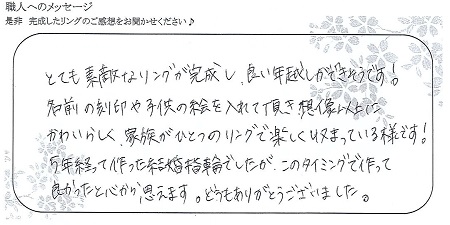 職人へのメッセージ
是非 完成したリングのご感想をお聞かせください♪
とても素敵なリングが完成し、良い年越しができそうです!
名前の刻印や子供の絵を入れて頂き、想像以上に
かわいらしく、家族がひとつのリングで楽しく収まっている様です!
5年経って作った結婚指輪でしたが、このタイミングで作って
良かったと心から思えます。どうもありがとうございました。